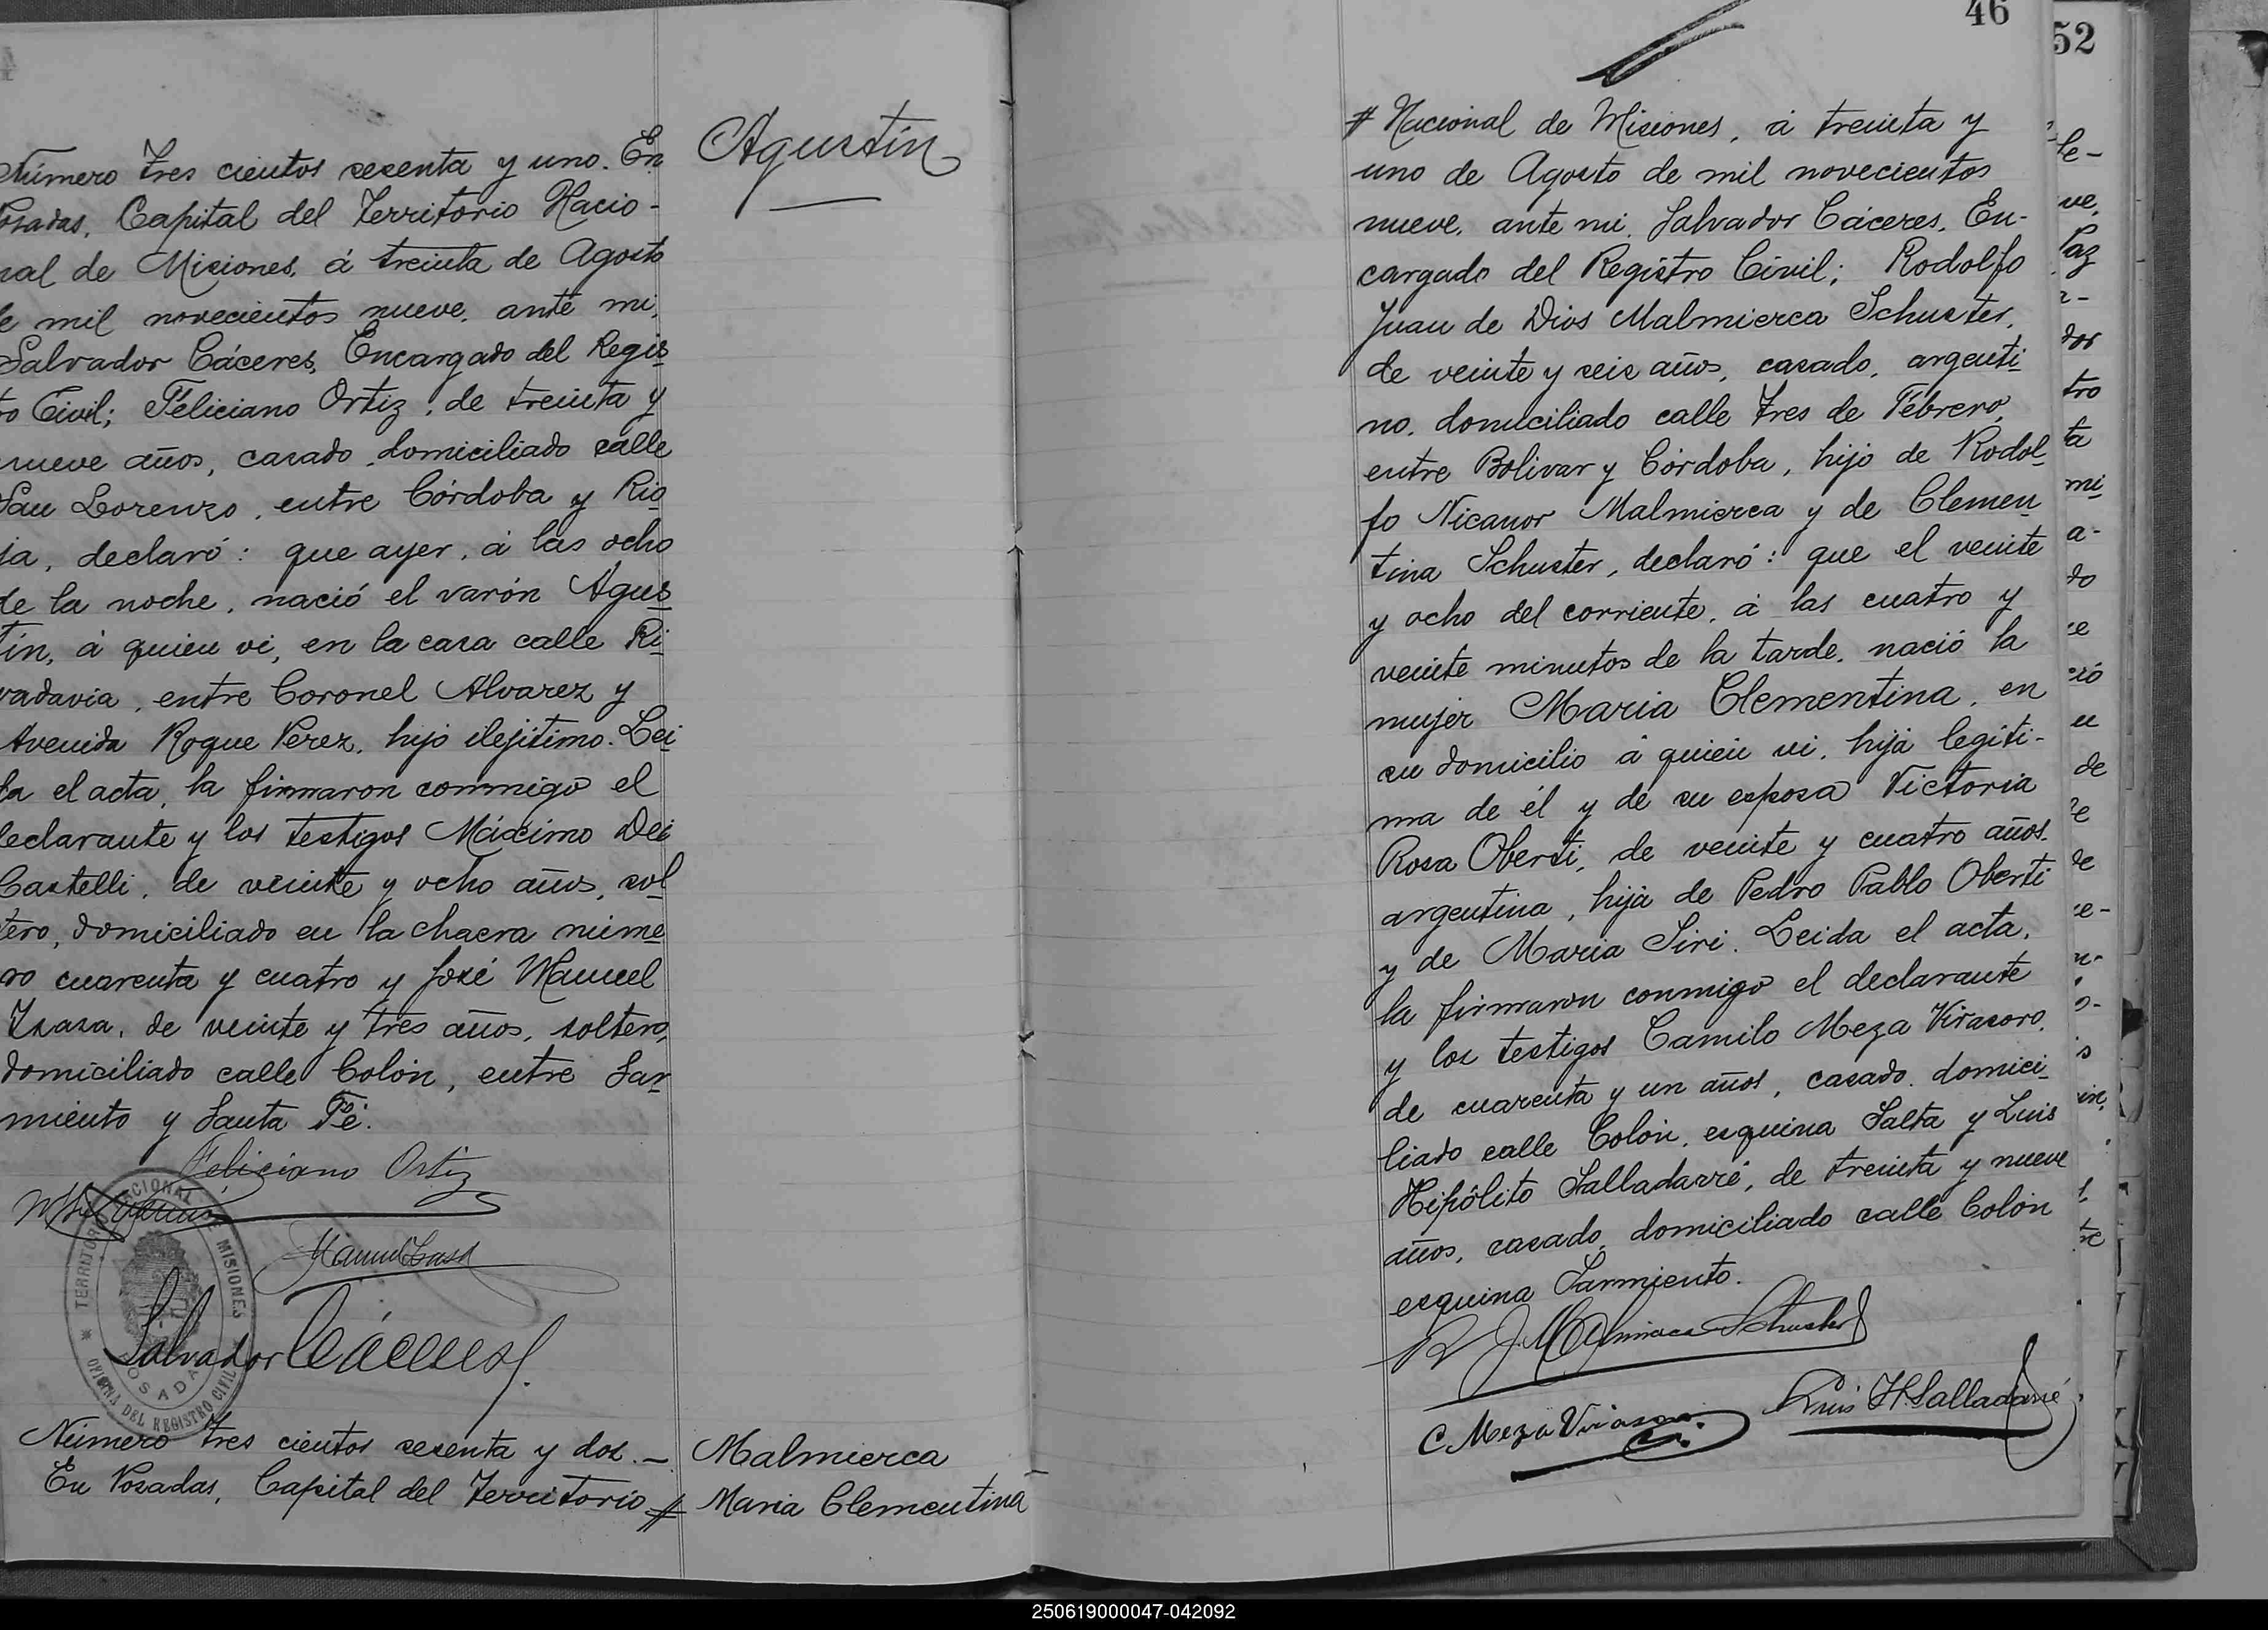 Número tres cientos sesenta y uno. En
Posadas, Capital del Territorio Nacio-
nal de Misiones, á treinta de Agosto
de mil novecientos nueve, ante mi,
Salvador Cáceres, Encargado del Regis
tro Civil; Feliciano Ortiz, de treinta y
nueve años, casado, domiciliado calle
San Lorenzo, entre Córdoba y Rio
ja, declaró: que ayer, á las ocho
de la noche, nació el varón Agus
tin, á quien vi, en la casa calle Ri
vadavia, entre Coronel Alvarez y
Avenida Roque Perez, hijo ilejitimo. Lei
da el acta, la firmaron conmigo el
declarante y los testigos Máximo Dei
Castelli, de veinte y ocho años, sol
tero, domiciliado en la chacra núme
ro cuarenta y cuatro y José Manuel
Isasa, de veinte y tres años, soltero,
domiciliado calle Colón, entre Sar
miento y Santa Fé.
Feliciano Ortiz
Manuel Isasa
Salvador Cáceres
TERRITORIO NACIONAL DE MISIONES
POSADAS
OFICINA DEL REGISTRO CIVIL
Número tres cientos sesenta y dos.-
En Posadas, Capital del Territorio #
Agustín
Malmierca
Maria Clementina
46
# Nacional de Misiones, á treinta y
uno de Agosto de mil novecientos
nueve, ante mi, Salvador Cáceres, En-
cargado del Registro Civil; Rodolfo
Juan de Dios Malmierca Schuster,
de veinte y seis años, casado, argenti
no, domiciliado calle Tres de Febrero,
entre Bolivar y Córdoba, hijo de Rodol
fo Nicanor Malmierca y de Clemen
tina Schuster, declaró: que el veinte
y ocho del corriente, á las cuatro y
veinte minutos de la tarde, nació la
mujer Maria Clementina, en
su domicilio á quien vi, hija legiti-
ma de él y de su esposa Victoria
Rosa Oberti, de veinte y cuatro años,
argentina, hija de Pedro Pablo Oberti
y de Maria Siri. Leida el acta,
la firmaron conmigo el declarante
y los testigos Camilo Meza Virasoro,
de cuarenta y un años, casado, domici
liado calle Colón, esquina Salta y Luis
Hipólito Salladarré, de treinta y nueve
años, casado, domiciliado calle Colón
esquina Sarmiento.
R J Malmierca Schuster
C Meza Virasoro
Luis H. Salladarré
52
250619000047-042092